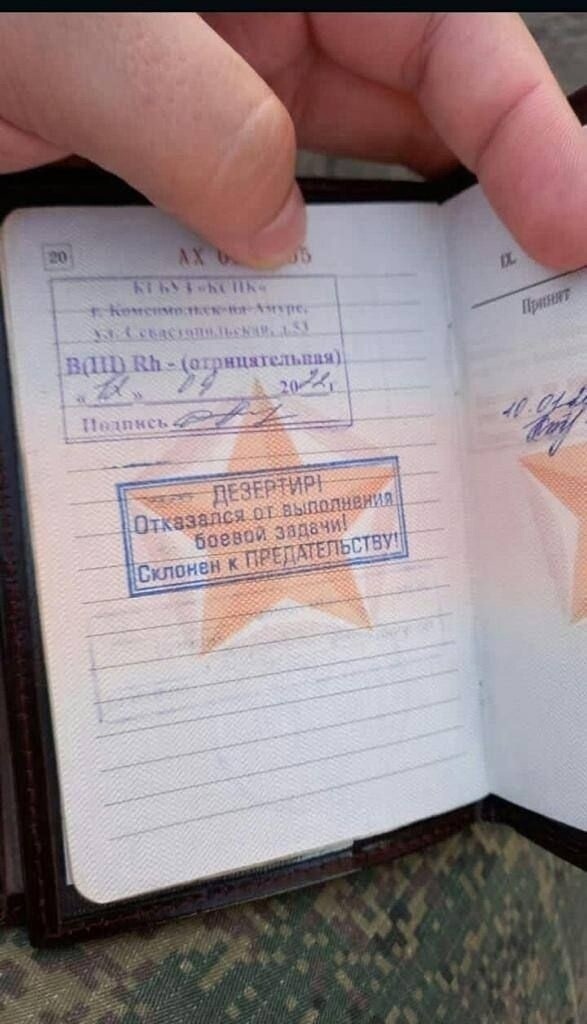 20
АХ
КГБУЗ «КСПК»
г. Комсомольск-на-Амуре,
ул. Севастопольская, д.53
В(III) Rh - (отрицательная)
« 12 » 09 2022 г.
Подпись
ДЕЗЕРТИР!
Отказался от выполнения
боевой задачи!
Склонен к ПРЕДАТЕЛЬСТВУ!
IX.
Принят
10.01